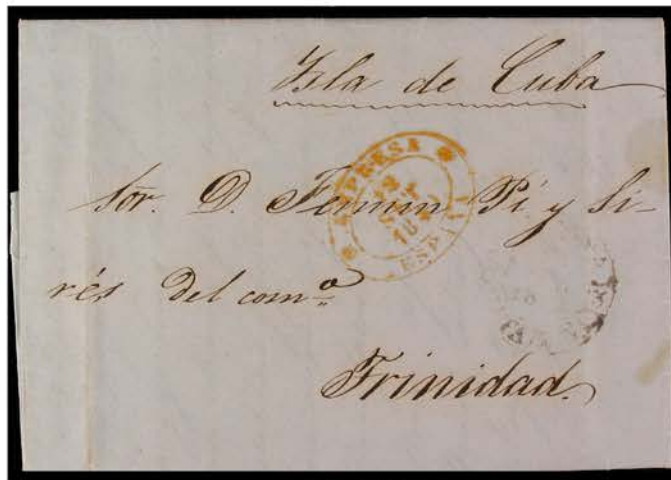 Isla de Cuba
Sór. D. Fermin Pí y Si-
rés del com.º
Trinidad.
EMPRESA
ESPAÑA